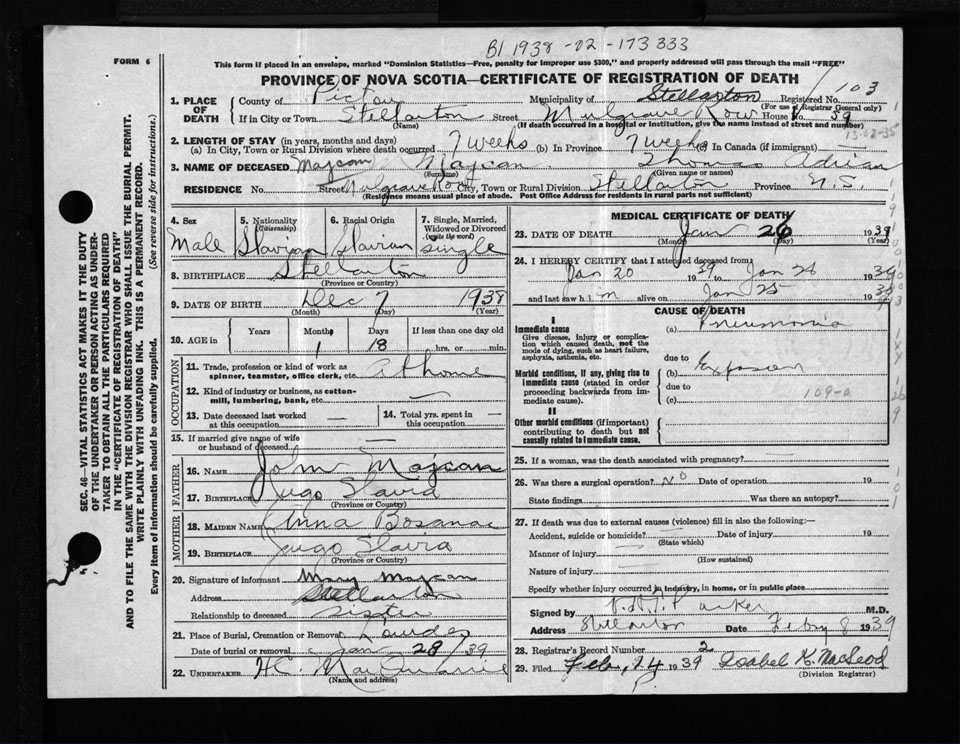 B1 1938-02-173333
FORM 6
This form if placed in an envelope, marked "Dominion Statistics—Free, penalty for improper use $300," and properly addressed will pass through the mail "FREE"
PROVINCE OF NOVA SCOTIA—CERTIFICATE OF REGISTRATION OF DEATH
1. PLACE OF DEATH County of Pictou Municipality of Stellarton Registered No. 103
(For use of Registrar General only)
If in City or Town Stellarton Street Mulgrave Row House No. 59
(Name) (If death occurred in a hospital or institution, give the name instead of street and number)
13-02-35
2. LENGTH OF STAY (in years, months and days)
(a) In City, Town or Rural Division where death occurred 7 weeks (b) In Province 7 weeks (c) In Canada (if immigrant) —
3. NAME OF DECEASED Majcan Majcan Thomas Adrian
(Surname) (Given name or names)
RESIDENCE No. Street Mulgrave Row City, Town or Rural Division Stellarton Province N.S.
(Residence means usual place of abode. Post Office Address for residents in rural parts not sufficient)
4. Sex 5. Nationality (Citizenship) 6. Racial Origin 7. Single, Married, Widowed or Divorced (write the word)
Male Slavian Slavian single
8. BIRTHPLACE Stellarton
(Province or Country)
9. DATE OF BIRTH Dec 7 1938
(Month) (Day) (Year)
10. AGE in Years Months Days If less than one day old
1 18 hrs. or min.
OCCUPATION
11. Trade, profession or kind of work as spinner, teamster, office clerk, etc. At home
12. Kind of industry or business, as cotton-mill, lumbering, bank, etc. —
13. Date deceased last worked at this occupation — 14. Total yrs. spent in this occupation —
15. If married give name of wife or husband of deceased —
FATHER
16. NAME John Majcan
17. Birthplace Jugo Slavia
(Province or Country)
MOTHER
18. MAIDEN NAME Anna Bosanac
19. Birthplace Jugo Slavia
(Province or Country)
20. Signature of informant Mary Majcan
Address Stellarton
Relationship to deceased sister
21. Place of Burial, Cremation or Removal Lourdes
Date of burial or removal Jan 28/39
22. UNDERTAKER H.C.
(Name and address)
MEDICAL CERTIFICATE OF DEATH
23. DATE OF DEATH Jan 26 1939
(Month) (Day) (Year)
24. I HEREBY CERTIFY that I attended deceased from
Jan 20 1939 to Jan 26 1939
and last saw him alive on Jan 25 1939
CAUSE OF DEATH
I
Immediate cause (a) Pneumonia
Give disease, injury or complication which caused death, not the mode of dying, such as heart failure, asphyxia, asthenia, etc.
due to
Morbid conditions, if any, giving rise to immediate cause (stated in order proceeding backwards from immediate cause). (b) Exposure
due to
(c) 109-a
II
Other morbid conditions (if important) contributing to death but not causally related to immediate cause.
25. If a woman, was the death associated with pregnancy? —
26. Was there a surgical operation? No Date of operation 19
State findings Was there an autopsy?
27. If death was due to external causes (violence) fill in also the following:—
Accident, suicide or homicide? Date of injury 19
(State which)
Manner of injury
(How sustained)
Nature of injury
Specify whether injury occurred in industry, in home, or in public place
Signed by Parker M.D.
Address Stellarton Date Feby 8 1939
28. Registrar's Record Number 2
29. Filed Feb. 14 1939 Isabel K. MacLeod
(Division Registrar)
SEC. 46—VITAL STATISTICS ACT MAKES IT THE DUTY
OF THE UNDERTAKER OR PERSON ACTING AS UNDER-
TAKER TO OBTAIN ALL THE PARTICULARS REQUIRED
IN THE "CERTIFICATE OF REGISTRATION OF DEATH"
AND TO FILE THE SAME WITH THE DIVISION REGISTRAR WHO SHALL ISSUE THE BURIAL PERMIT.
WRITE PLAINLY WITH UNFADING INK. THIS IS A PERMANENT RECORD.
Every item of information should be carefully supplied. (See reverse side for instructions.)